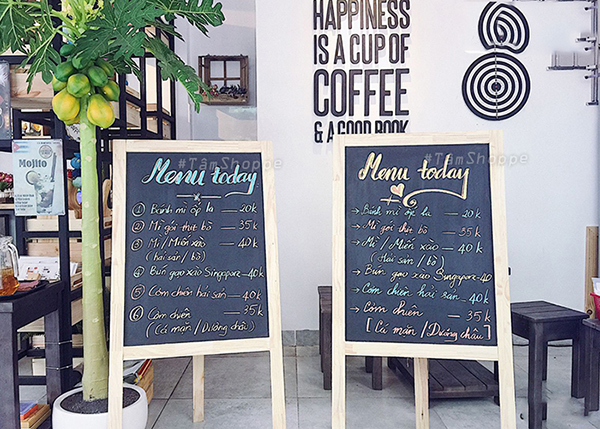 HAPPINESS
IS A CUP OF
COFFEE
& A GOOD BOOK
Mojito
#TâmShoppe
Menu today
① Bánh mì ốp la — 20k
② Mì gói thịt bò — 35k
③ Mì / Miến xào — 40k
(hải sản / bò)
④ Bún gạo xào Singapore - 40k
⑤ Cơm chiên hải sản — 40k
⑥ Cơm chiên — 35k
(Cá mặn / Dương châu)
#TâmShoppe
Menu today
→ Bánh mì ốp la — 20k
→ Mì gói thịt bò — 35k
→ Mì / Miến xào — 40k
(Hải sản / bò)
→ Bún gạo xào Singapore - 40
→ Cơm chiên hải sản — 40k
→ Cơm chiên — 35k
[Cá mặn / Dương châu]